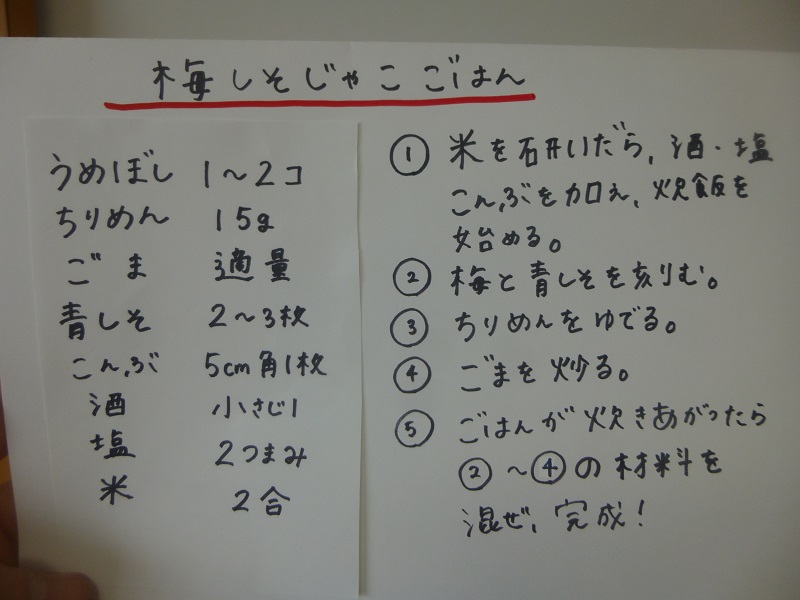 梅しそじゃこごはん
うめぼし 1～2コ
ちりめん 15g
ごま 適量
青しそ 2～3枚
こんぶ 5cm角1枚
酒 小さじ1
塩 2つまみ
米 2合
① 米を研いだら、酒・塩
こんぶを加え、炊飯を
始める。
② 梅と青しそを刻む。
③ ちりめんをゆでる。
④ ごまを炒る。
⑤ ごはんが炊きあがったら
②～④の材料を
混ぜ、完成！